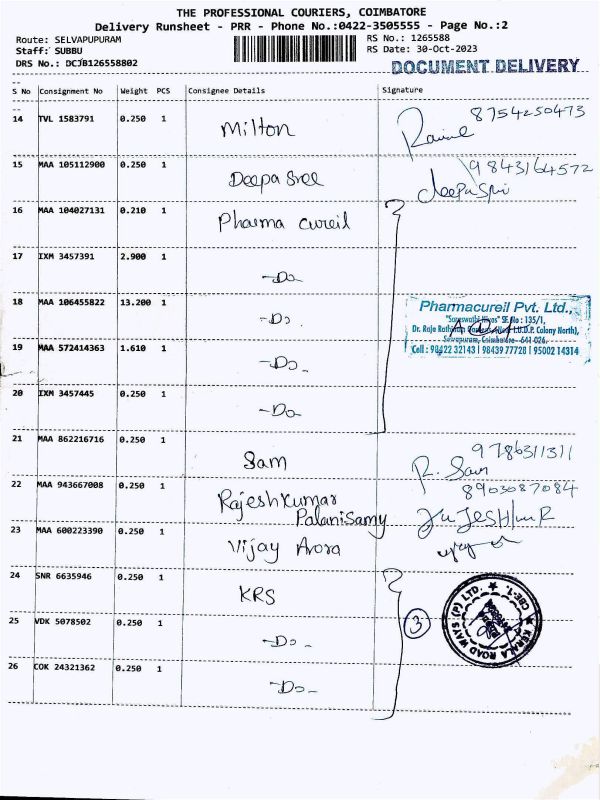 THE PROFESSIONAL COURIERS, COIMBATORE
Delivery Runsheet - PRR - Phone No.:0422-3505555 - Page No.:2
Route: SELVAPUPURAM
RS No.: 1265588
Staff: SUBBU
RS Date: 30-Oct-2023
DRS No.: DCJB126558802
DOCUMENT DELIVERY
S No Consignment No Weight PCS Consignee Details Signature
14 TVL 1583791 0.250 1 Milton 8754250473
15 MAA 105112900 0.250 1 Deepa Sree 9843164572
deepa sri
16 MAA 104027131 0.210 1 Pharma cureil
17 IXM 3457391 2.900 1 -Do-
18 MAA 106455822 13.200 1 -Do-
Pharmacureil Pvt. Ltd.,
"Saraswathi Nivas" SF.No : 135/1,
Dr. Raja Rathinam (North),
Colony North),
Selvapuram, Coimbatore- 641 026.
Cell : 98422 32143 | 98439 77728 | 95002 14314
19 MAA 572414363 1.610 1 -Do-
20 IXM 3457445 0.250 1 -Do-
21 MAA 862216716 0.250 1 Sam 9786311311
R. Sam
22 MAA 943667008 0.250 1 Rajesh Kumar Palanisamy 8903087084
23 MAA 600223390 0.250 1 Vijay Arora
24 SNR 6635946 0.250 1 KRS
25 VDK 5078502 0.250 1 -Do-
3
KERALA ROAD WAYS (P) LTD. CBE-1.
26 COK 24321362 0.250 1 -Do-